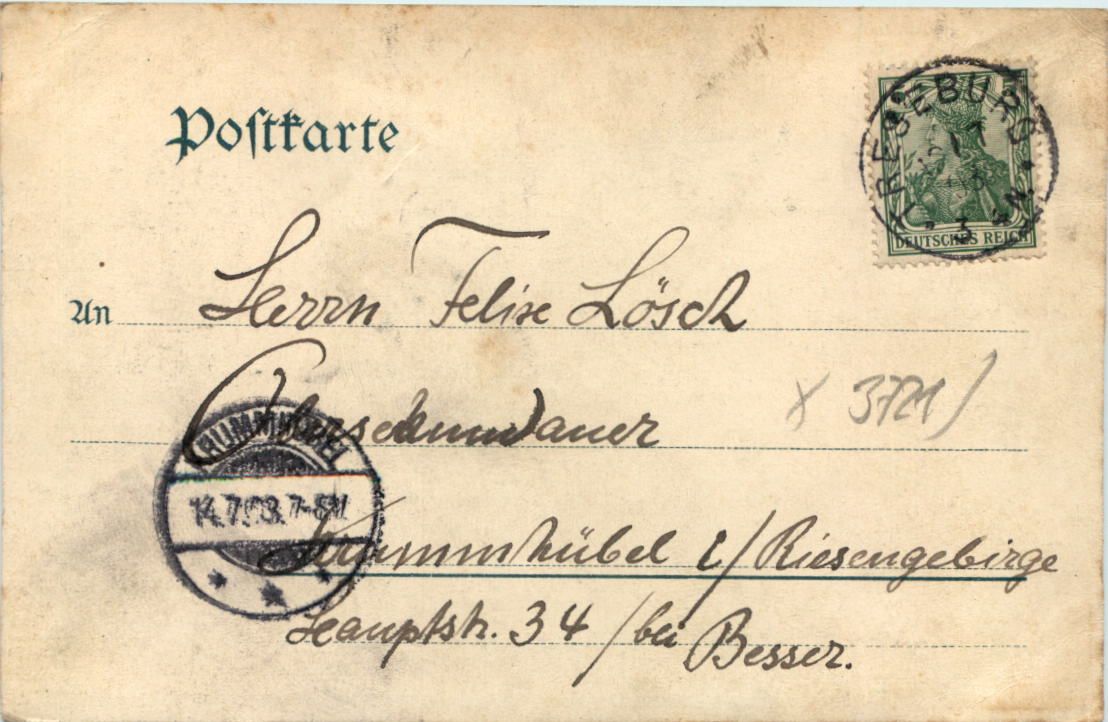 Postkarte
DEUTSCHES REICH
An Herrn Felix Lösch
Obersekundaner
x 3721)
14.7. 7-8N.
Krummhübel i/Riesengebirge
Hauptstr. 34 / bei Besser.